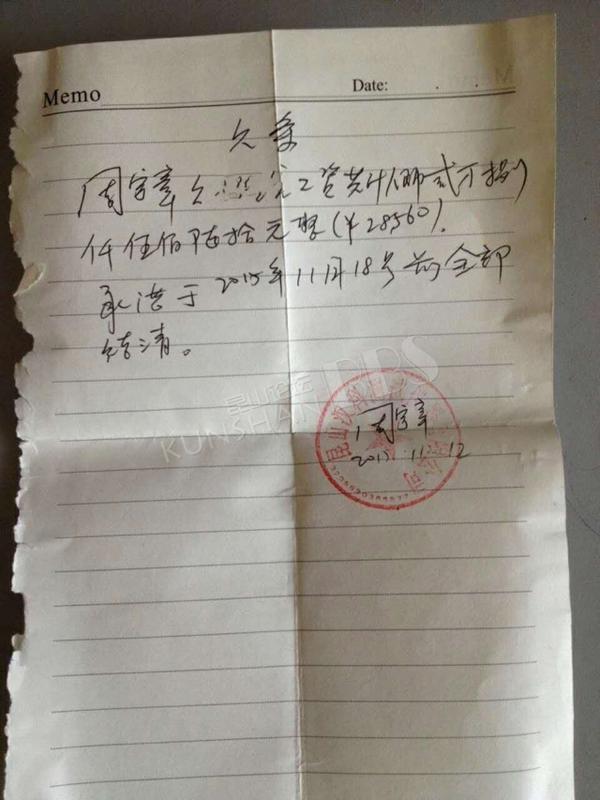 Memo Date: . .
欠条
周宇章欠 工资共计人币贰万捌
仟伍佰陆拾元整(¥28560).
承诺于2015年11月18号前全部
结清。
昆山论坛
KUNSHAN BBS
昆山 公司
周宇章
2015.11.12